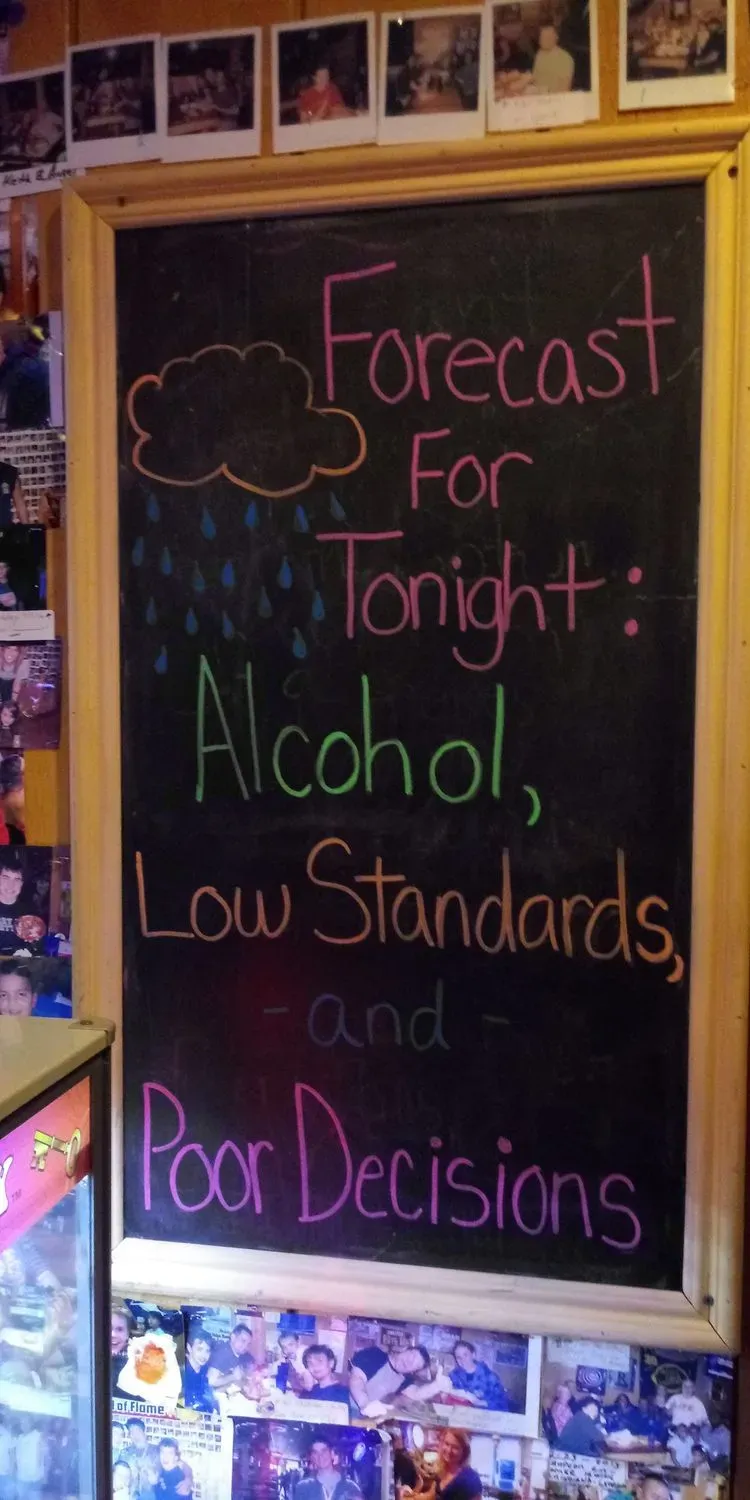 Forecast
For
Tonight:
Alcohol,
Low Standards,
- and -
Poor Decisions
of Flame